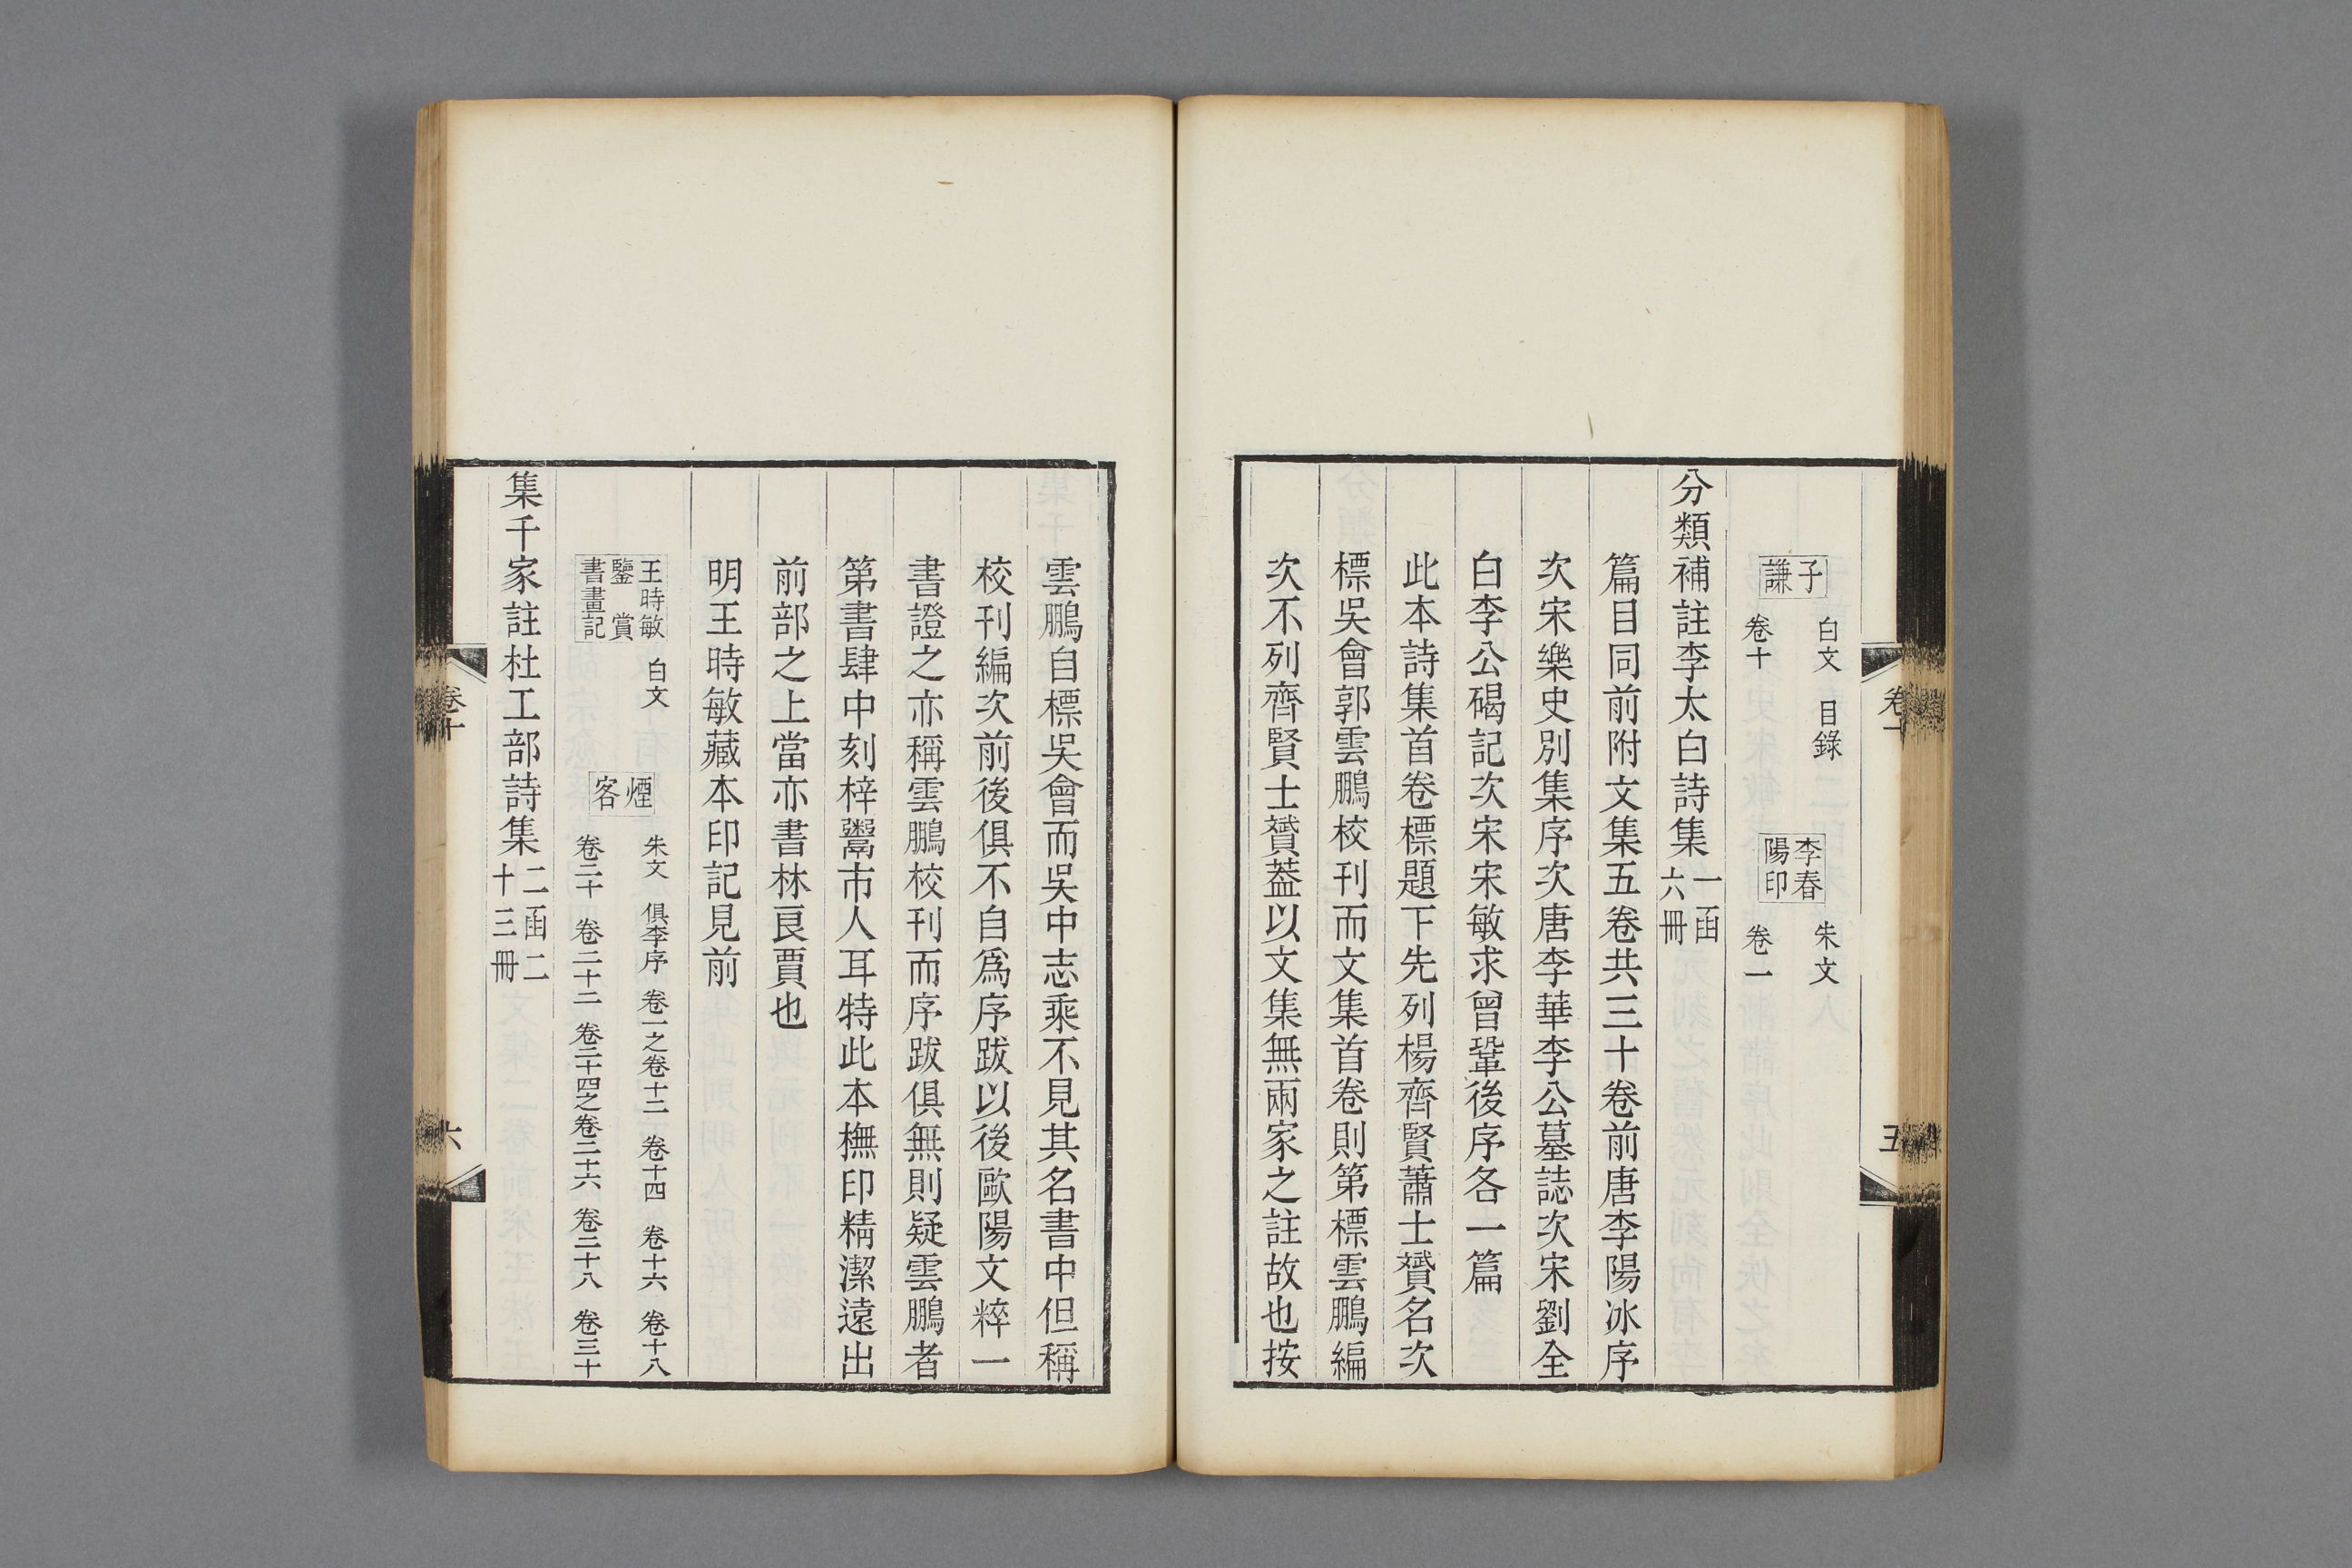 卷十
五
子謙
白文
目錄
卷十
李春陽印
朱文
卷一
分類補註李太白詩集一函六冊
篇目同前附文集五卷共三十卷前唐李陽冰序
次宋樂史別集序次唐李華李公墓誌次宋劉全
白李公碣記次宋宋敏求曾鞏後序各一篇
此本詩集首卷標題下先列楊齊賢蕭士贇名次
標吳會郭雲鵬校刊而文集首卷則第標雲鵬編
次不列齊賢士贇蓋以文集無兩家之註故也按
雲鵬自標吳會而吳中志乘不見其名書中但稱
校刊編次前後俱不自爲序跋以後歐陽文粹一
書證之亦稱雲鵬校刊而序跋俱無則疑雲鵬者
第書肆中刻梓鬻市人耳特此本撫印精潔遠出
前部之上當亦書林良賈也
明王時敏藏本印記見前
王時敏鑒賞書畫記
白文
煙客
朱文 俱李序 卷一之卷十二 卷十四 卷十六 卷十八
卷二十 卷二十二 卷二十四之卷二十六 卷二十八 卷三十
集千家註杜工部詩集二函二十三冊
卷十
六